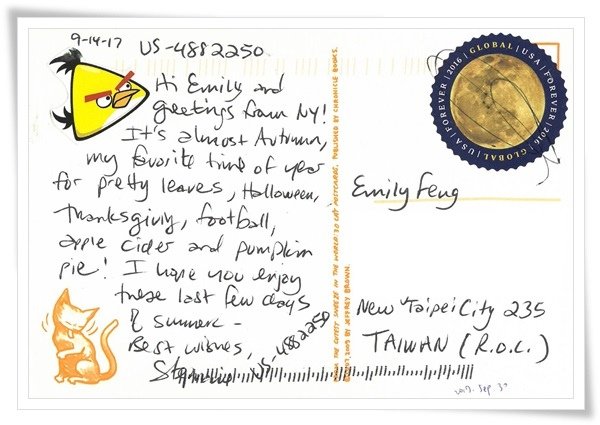 9-14-17 US-4882250
Hi Emily and
greetings from NY!
It's almost Autumn,
my favorite time of year
for pretty leaves, Halloween,
Thanksgiving, football,
apple cider and pumpkin
pie! I hope you enjoy
these last few days
of summer -
Best wishes,
US-4882250
FROM THE CUTEST SNEEZE IN THE WORLD: 30 CAT POSTCARDS. PUBLISHED BY CHRONICLE BOOKS.
2009 BY JEFFREY BROWN.
GLOBAL | USA | FOREVER | 2016 | GLOBAL | USA | FOREVER | 2016
Emily Feng
New Taipei City 235
TAIWAN (R.O.C.)